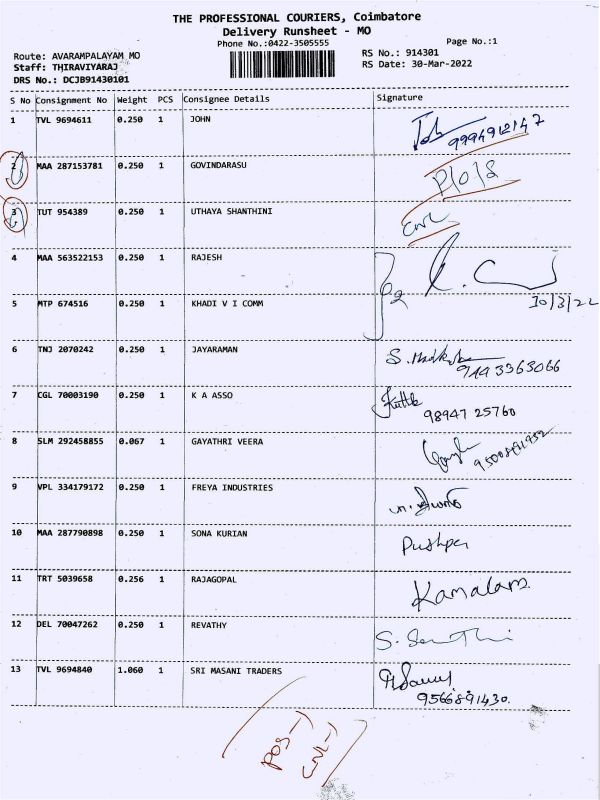 THE PROFESSIONAL COURIERS, Coimbatore
Delivery Runsheet - MO
Phone No.:0422-3505555
Page No.:1
Route: AVARAMPALAYAM MO
RS No.: 914301
Staff: THIRAVIYARAJ
RS Date: 30-Mar-2022
DRS No.: DCJB91430101
S No Consignment No Weight PCS Consignee Details Signature
1 TVL 9694611 0.250 1 JOHN
9994912147
2 MAA 287153781 0.250 1 GOVINDARASU
3 TUT 954389 0.250 1 UTHAYA SHANTHINI
4 MAA 563522153 0.250 1 RAJESH
5 MTP 674516 0.250 1 KHADI V I COMM
30/3/22
6 TNJ 2070242 0.250 1 JAYARAMAN
9443363066
7 CGL 70003190 0.250 1 K A ASSO
98947 25760
8 SLM 292458855 0.067 1 GAYATHRI VEERA
9 VPL 334179172 0.250 1 FREYA INDUSTRIES
10 MAA 287790898 0.250 1 SONA KURIAN Pushpa
11 TRT 5039658 0.256 1 RAJAGOPAL Kamalam
12 DEL 70047262 0.250 1 REVATHY S. Senthi
13 TVL 9694840 1.060 1 SRI MASANI TRADERS
9566891430.